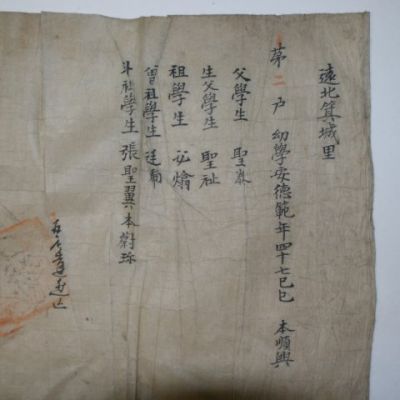 遠北箕城里
第二戶 幼學安德範年四十七己巳 本順興
父學生 聖泰
生父學生 聖祉
祖學生
曾祖學生 廷
外祖學生 張聖翼本蔚珍